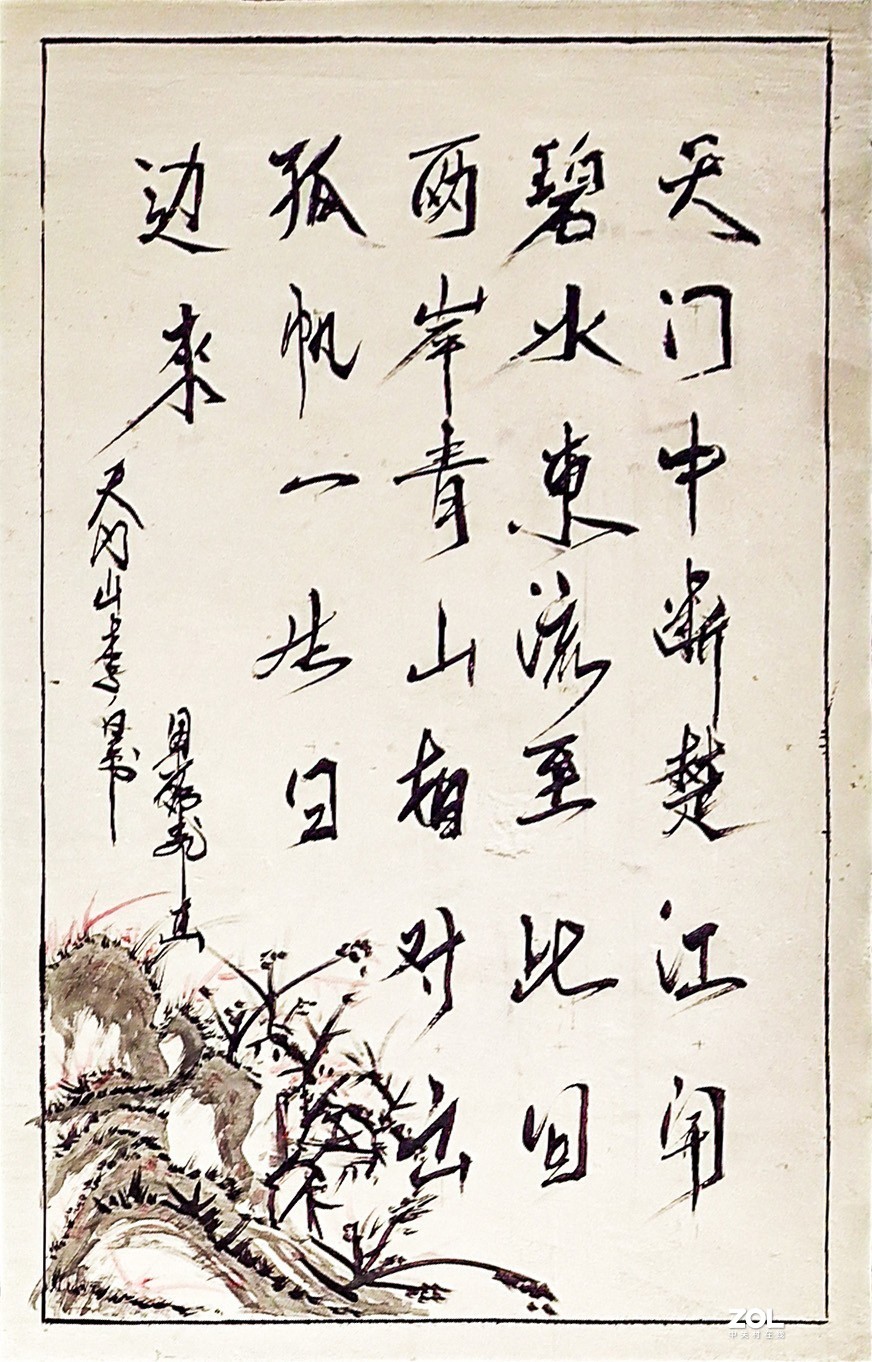 天门中断楚江開
碧水東流至此回
两岸青山相对出
孤帆一片日
边来
天门山李白
ZOL
中关村在线